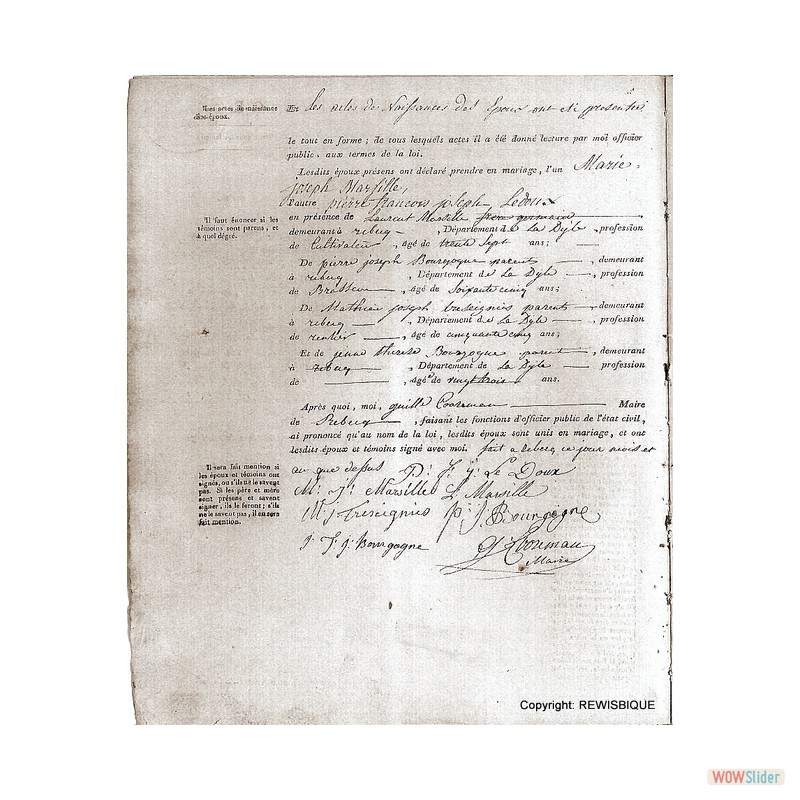 Les actes de naissance des époux.
Et les actes de Naissances des Epoux ont été présentés
le tout en forme ; de tous lesquels actes il a été donné lecture par moi officier
public, aux termes de la loi.
Lesdits époux présens ont déclaré prendre en mariage, l'un Marie
joseph Marsille,
l'autre pierre francois joseph Ledoux
Il faut énoncer si les
témoins sont parens, et
à quel dégré.
en présence de Laurent Marsille frère germain
demeurant à rebecq, Département de La Dyle, profession
de Cultivateur, âgé de trente sept ans;
De pierre joseph Bourgogne parent, demeurant
à rebecq, Département de La Dyle, profession
de Brasseur, âgé de Soixante cinq ans;
De Mathieu joseph treseignies parent, demeurant
à rebecq, Département de La Dyle profession
de rentier, âgé de cinquante cinq ans;
Et de jeune therese Bourgogne parent, demeurant
à rebecq, Département de La Dyle profession
de âgé de vingt trois ans.
Après quoi, moi, guille Cooreman Maire
de Rebecq, faisant les fonctions d'officier public de l'état civil,
ai prononcé qu'au nom de la loi, lesdits époux sont unis en mariage, et ont
lesdits époux et témoins signé avec moi. fait a rebecq ce jour mois et
an que dessus
Il sera fait mention si
les époux et témoins ont
signés, ou s'ils ne le savent
pas. Si les père et mère
sont présens et savent
signer, ils le feront; s'ils
ne le savent pas, il en sera
fait mention.
P: F: j: Le Doux
M: J: Marsille L Marsille
M j Treseignies P: J: Bourgogne
J: T: j: Bourgogne G: Cooreman
Maire
Copyright: REWISBIQUE
WOWSlider